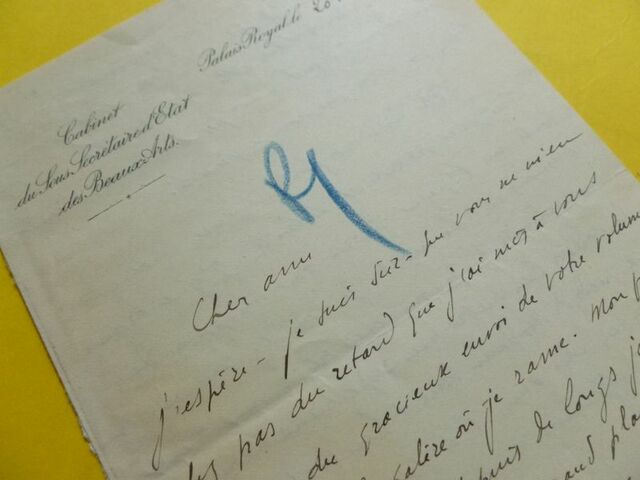 Cabinet
du Sous Secrétaire d'Etat
des Beaux-Arts.
Palais Royal, le 20
Cher ami
j'espère - je suis sûr - que vous ne m'en
pas du retard que j'ai mis à vous
du gracieux envoi de votre volume
galère où je rame. Mon
depuis de longs